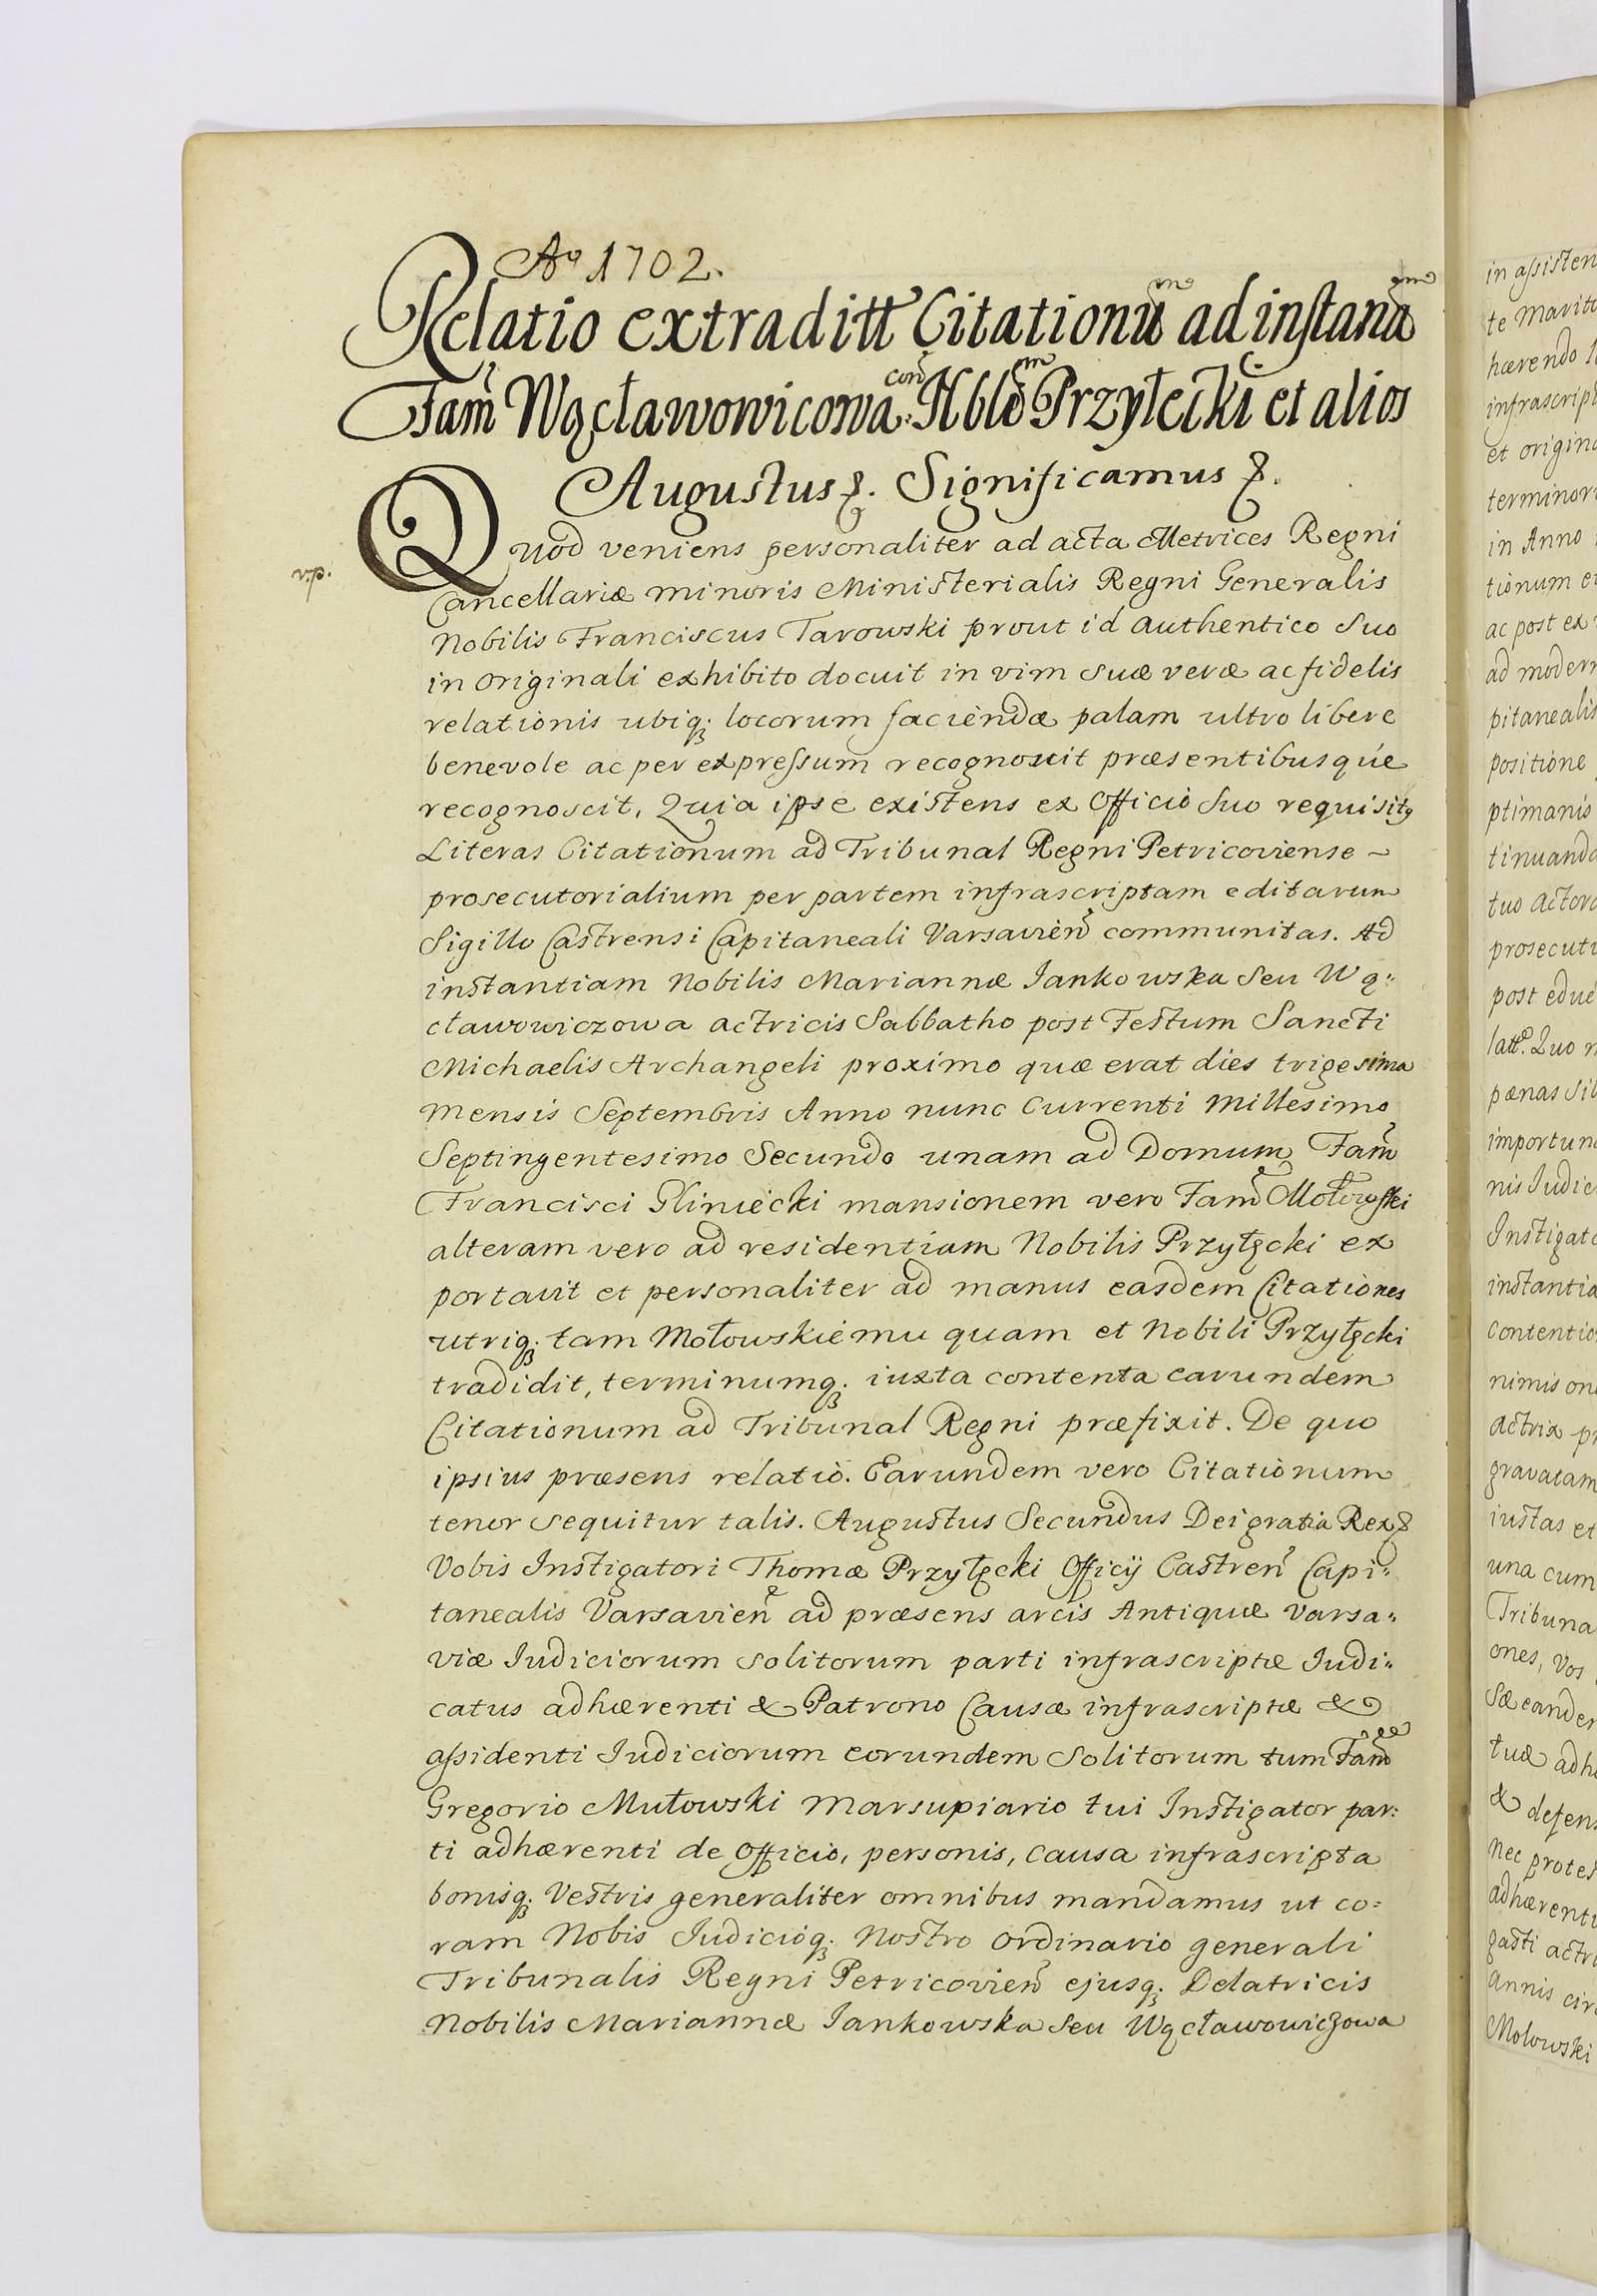 Aº 1702.
Relatio extraditt Citationũ ad instanã
Fam̃ Wąctawowicowa con̄ Nblõ Przyłecki et alios
Augustus &. Significamus &.
v.p.
Quod veniens personaliter ad acta Metrices Regni
Cancellariæ minoris Ministerialis Regni Generalis
Nobilis Franciscus Tarowski prout id authentico suo
in originali exhibito docuit in vim suæ veræ ac fidelis
relationis ubiq; locorum faciendæ palam ultro libere
benevole ac per expressum recognouit præsentibusque
recognoscit, Quia ipse existens ex Officio suo requisitꝰ
Literas Citationum ad Tribunal Regni Petricoviense ~
prosecutorialium per partem infrascriptam editarum
Sigillo Castrensi Capitaneali Varsavien̄ communitas. Ad
instantiam Nobilis Mariannæ Iankowska seu Wą:
cławowiczowa actricis Sabbatho post Festum Sancti
Michaelis Archangeli proximo quæ erat dies trigesima
mensis Septembris Anno nunc Currenti Millesimo
Septingentesimo Secundo unam ad Domum Fam̃
Francisci Gliniecki mansionem vero Fam̃ Mołowski
alteram vero ad residentiam Nobilis Przyłęcki ex
portavit et personaliter ad manus easdem Citationes
utriq; tam Mołowskiemu quam et Nobili Przyłęcki
tradidit, terminumq; iuxta contenta earundem
Citationum ad Tribunal Regni præfixit. De quo
ipsius præsens relatio. Earundem vero Citationum
tenor sequitur talis. Augustus Secundus Dei gratia Rex &
Vobis Instigatori Thomæ Przyłęcki Officij Castren̄ Capi:
tanealis Varsavien̄ ad præsens arcis Antiquæ Varsa:
viæ Iudiciorum solitorum parti infrascriptæ Iudi:
catus adhærenti & Patrono Causæ infrascriptæ &
assidenti Iudiciorum eorundem solitorum tum Fam̃
Gregorio Mułowski Marsupiario tui Instigator par:
ti adhærenti de Officio, personis, causa infrascripta
bonisq; Vestris generaliter omnibus mandamus ut co:
ram Nobis Iudicioq; Nostro ordinario generali
Tribunalis Regni Petricovien̄ ejusq; Delatricis
Nobilis Mariannæ Iankowska seu Wącławowiczowa
in assisten
te Maritt
hærendo
infrascript
et origina
terminor
in Anno
tionum
ac post ex
ad modern
pitanealis
positione
ptimanis
tinuanda
tuo Actora
prosecuti
post
Quo
pænas
importun
nis Iudic
Instigato
instantia
contentio
nimis
Actrix
gravatam
iustas et
una cum
Tribuna
ones, Vos
eander
tuæ
& defens
nec
adhærenti
actri
annis
Molowski